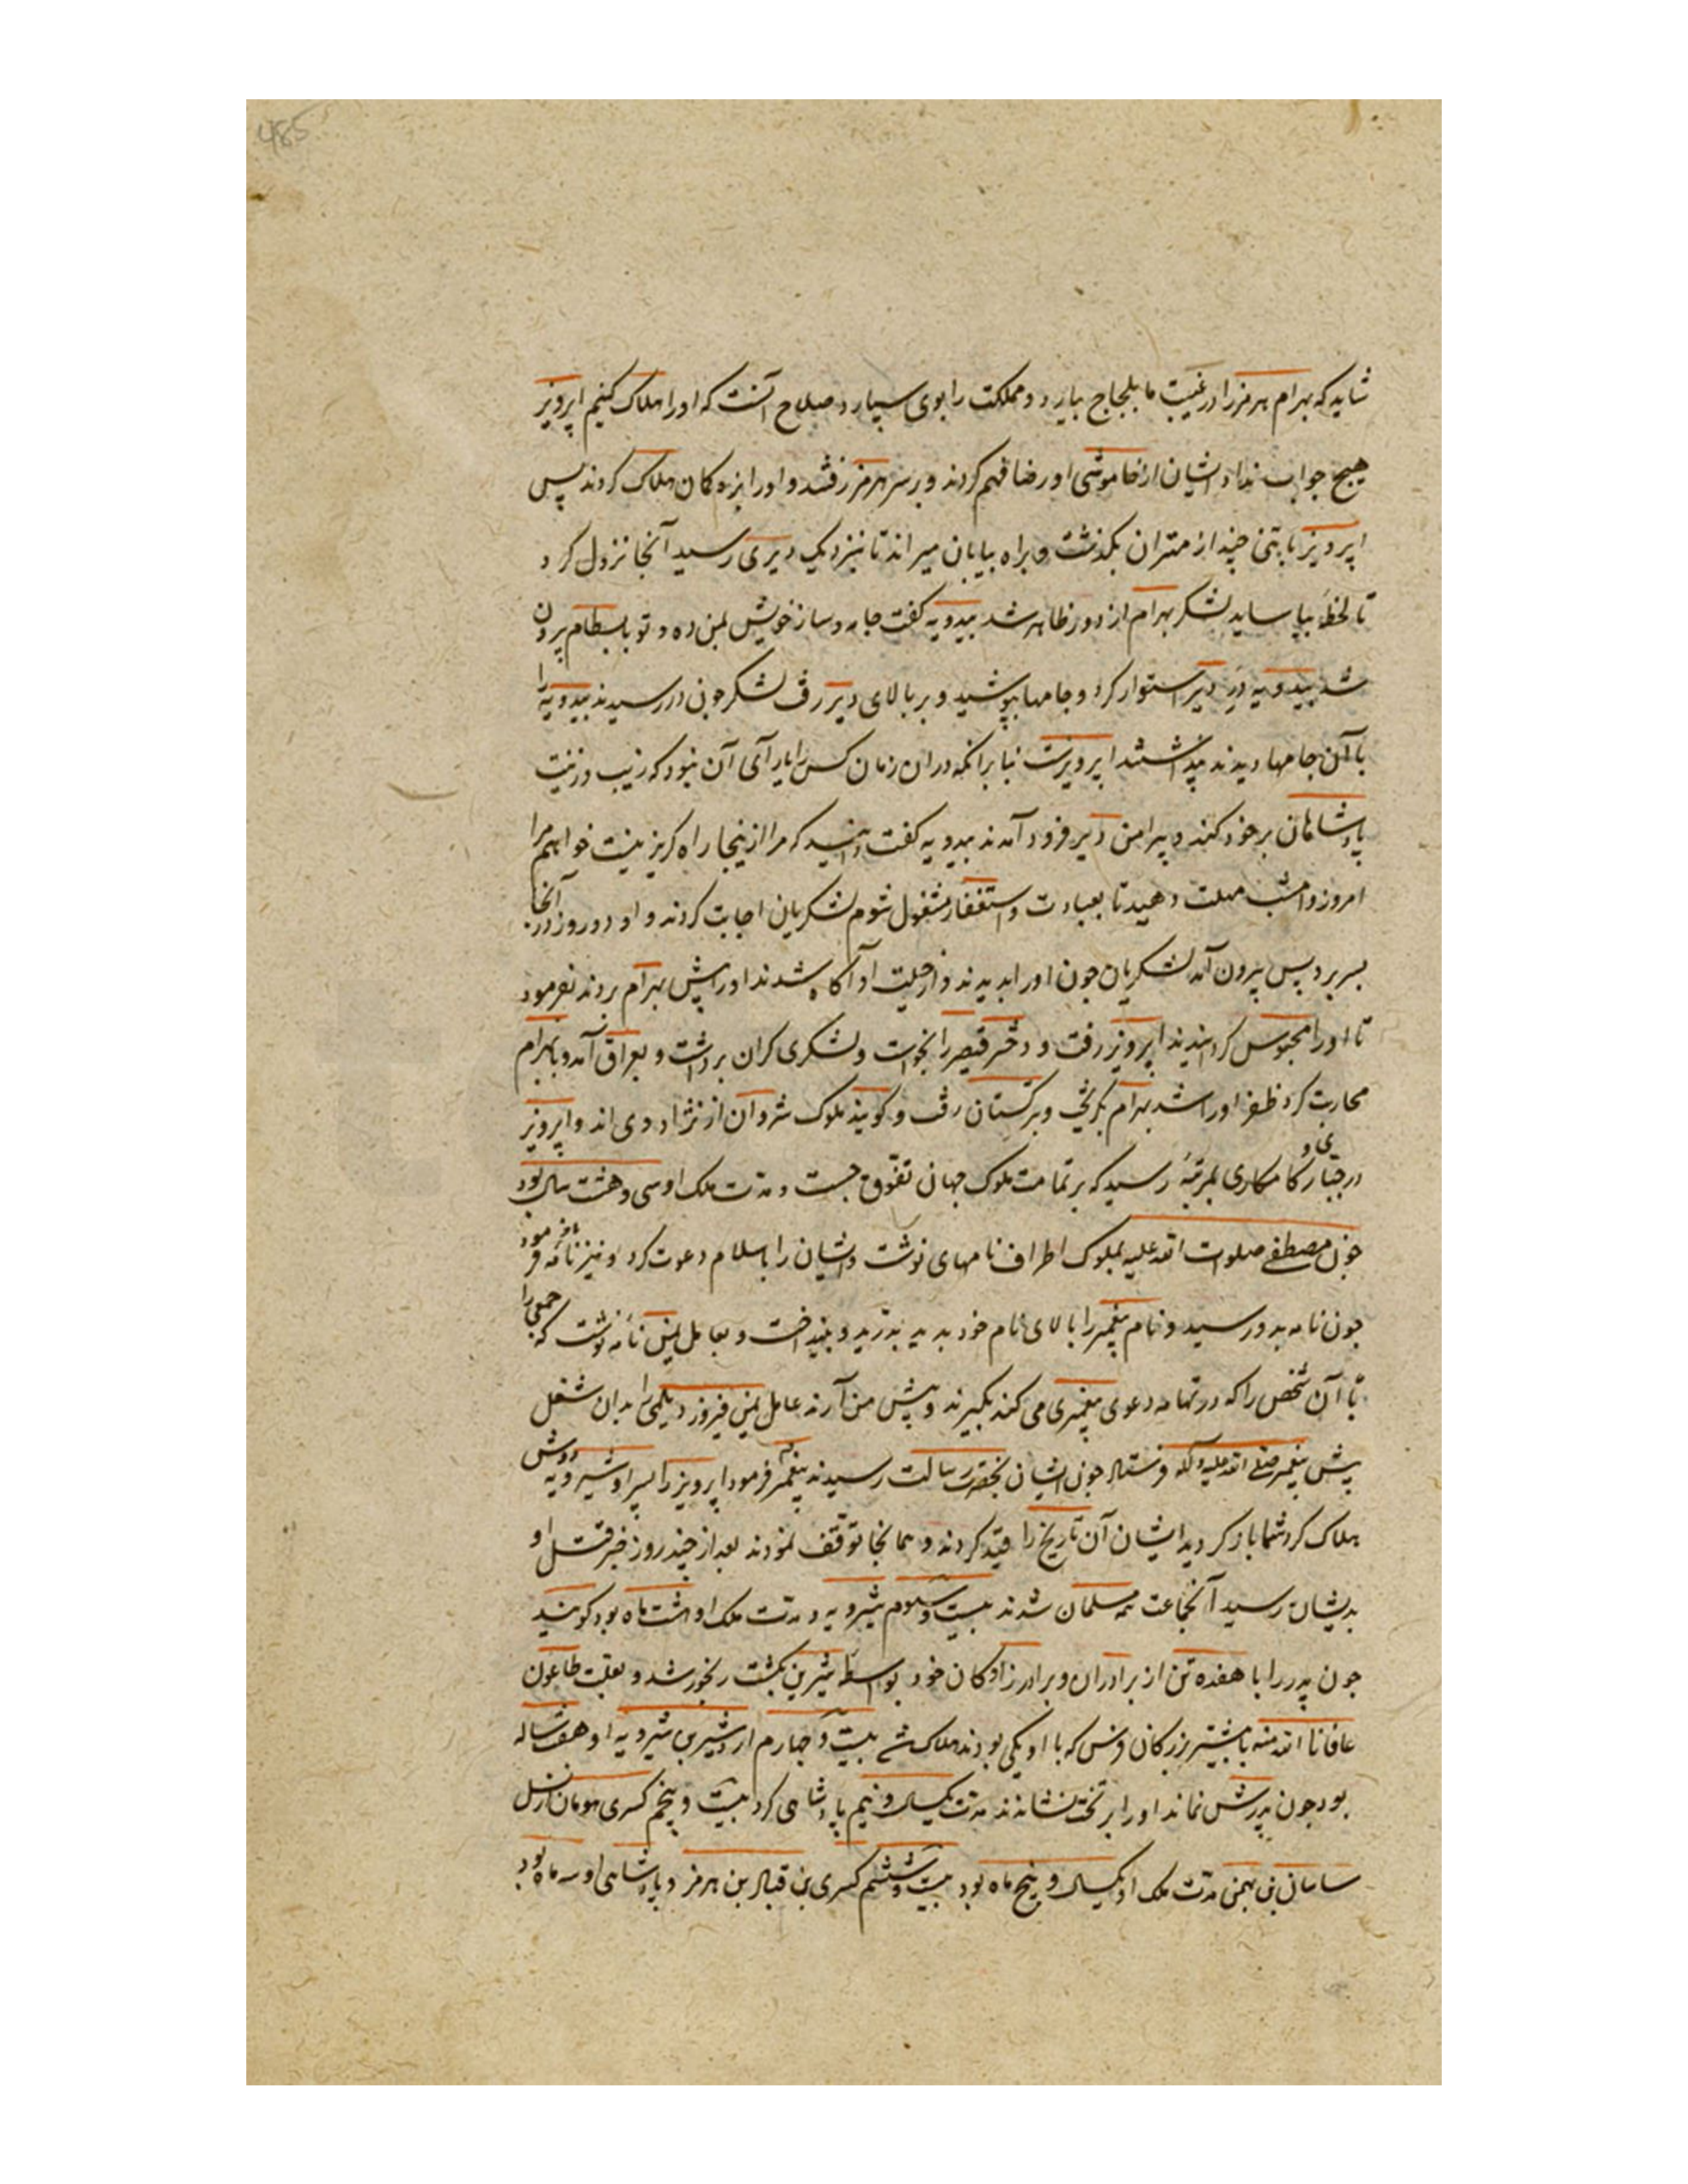 485
شاید که بهرام هرمز را در غیبت ما بلجاج بیارد و مملکت را بوی سپارد صلاح آنست که او را هلاک کنیم اپرویز
هیچ جواب نداد ایشان از خاموشی او رضا فهم کردند و بر سر هرمز رفتند و او را بزه کمان هلاک کردند پس
اپرویز با تنی چند از مقتران بگذشت و براه بیابان میراند تا نیزدیک دیری رسید آنجا نزول کرد
تا لحظهٔ بیاساید لشکر بهرام از دور ظاهر شد بیدویه گفت جامه و ساز خویش بمن ده و تو با بسطام برون
شد بیدویه در دیر استوار کرد و جامها بپوشید و بر بالای دیر رفت لشکر چون در رسیدند بیدویه را
با آن جامها دیدند پنداشتند اپرویزست بنابرانکه دران زمان کس را یارای آن نبود که زیب و زینت
پادشاهان بر خود کند و پیرامن دیر فرود آمدند بیدویه گفت دانید که مرا از ینجا راه گریز نیست خواهم مرا
امروز و امشب مهلت دهید تا بعبادت و استغفار مشغول شوم لشکریان اجابت کردند و او دو روز در آنجا
بسر برد پس بیرون آمد لشکریان چون او را بدیدند و از حیلت او آگاه شدند او را پیش بهرام بردند بفرمود
تا او را محبوس گردانیدند اپرویز رفت و دختر قیصر را بخواست و لشکری گران برداشت و بعراق آمد و با بهرام
محاربت کرد ظفر او را شد بهرام بگریخت و بترکستان رفت و گویند ملوک شروان از نژاد وی اند و اپرویز
در جباری و کامکاری بمرتبهٔ رسید که بر تمامت ملوک جهان تفوق جست و مدت ملک او سی و هشت سال بود
چون مصطفی صلوات الله علیه بملوک اطراف نامهای نوشت و ایشان را باسلام دعوت کرد او نیز نامه فرمود
چون نامه بدو رسید و نام پیغمبر را بالای نام خود بدید بدرید و بینداخت و بعامل یمن نامه نوشت که جمعی را
تا آن شخص را که در تهامه دعوی پیغمبری می کند بگیرند و پیش من آرند عامل یمن فیروز دیلمی را بدان شغل
پیش پیغمبر صلی الله علیه و آله فرستاد چون ایشان بحضرت رسالت رسیدند پیغمبر فرمود اپرویز را پسر او شیرویه دوش
هلاک کرد شما باز گردید ایشان آن تاریخ را قید کردند و همانجا توقف نمودند بعد از چند روز خبر قتل او
بدیشان رسید آنجماعت همه مسلمان شدند بیست و سوم شیرویه و مدت ملک او هشت ماه بود گویند
چون پدر را با هفده تن از برادران و برادرزادگان خود بواسطهٔ شیرین بکشت رنجور شد و بعلت طاعون
عافانا الله منه با بیشتر بزرگان فرس که با او یکی بودند هلاک شد بیست و چهارم اردشیر بن شیرویه او هفت ساله
بود چون پدرش نماند او را بر تخت نشاندند مدت یکسال و نیم پادشاهی کرد بیست و پنجم کسری هومان از نسل
ساسان بن بهمن مدت ملک او یکسال و پنج ماه بود بیست و ششم کسری بن قباد بن هرمز و پادشاهی او سه ماه بود